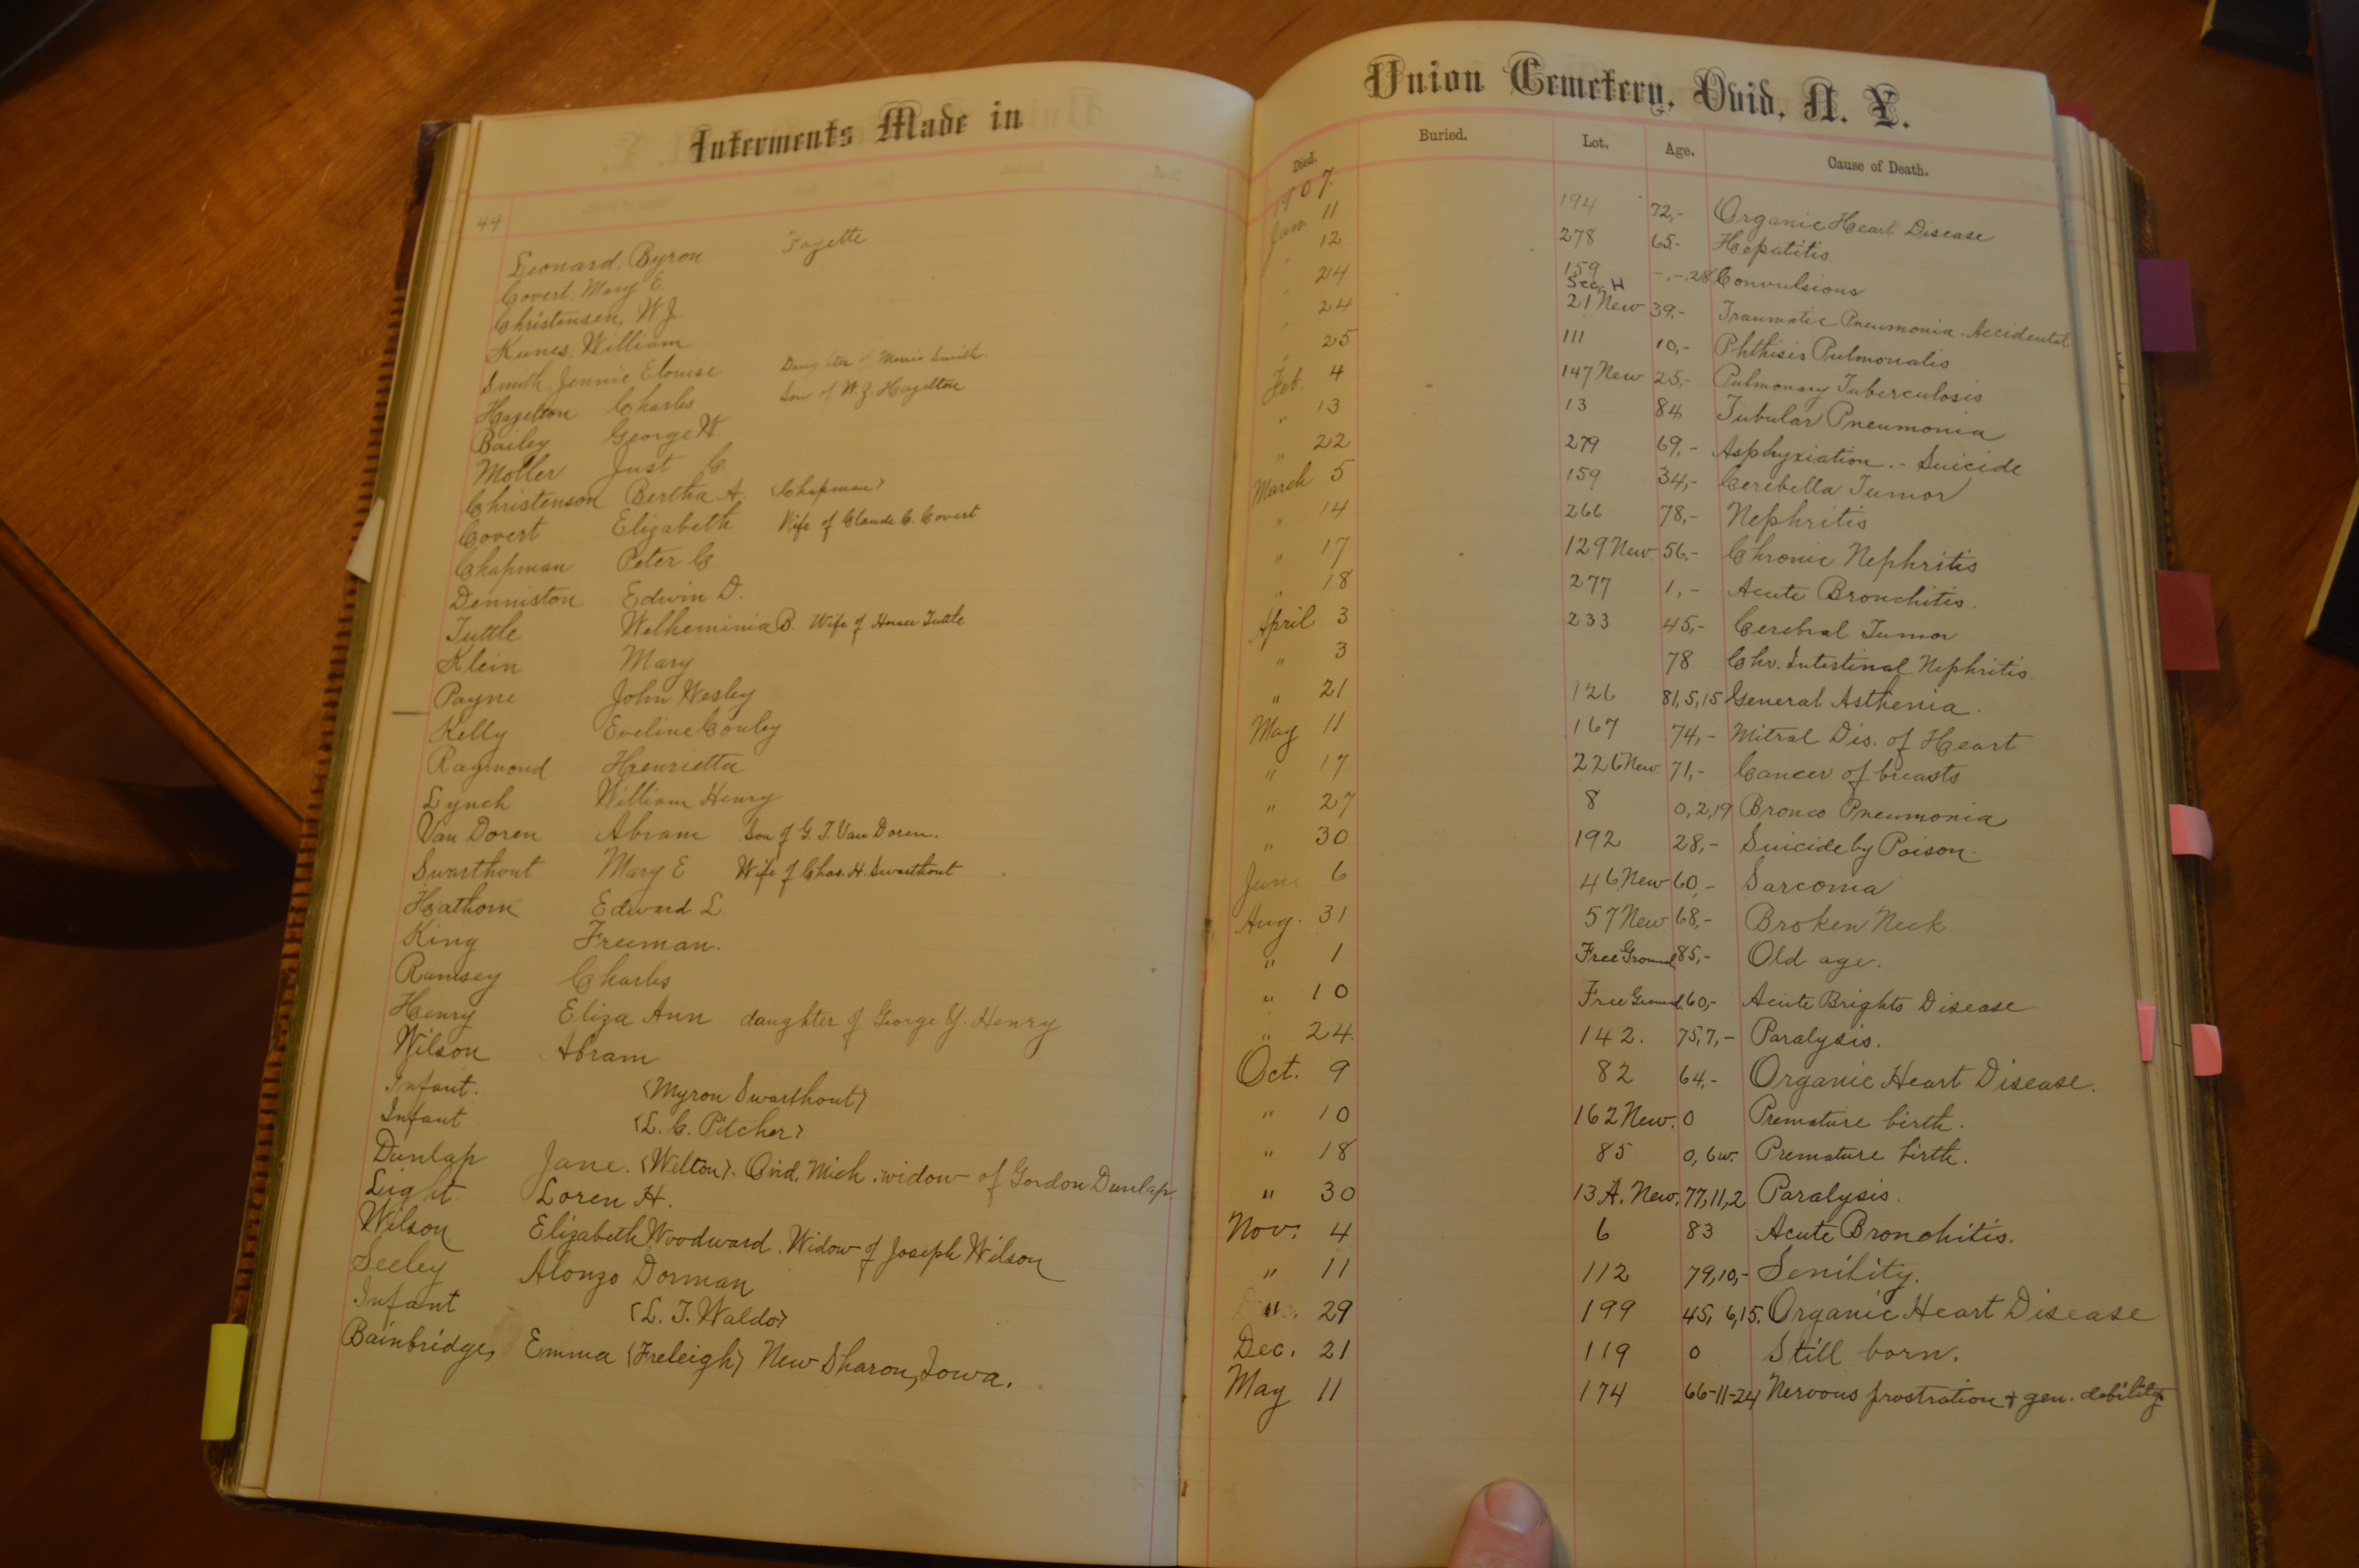 Interments Made in
44
Leonard, Byron Fayette
Covert, Mary E.
Christensen, W. J.
Kunes, William
Smith, Jennie Elouise Daughter of Morris Smith.
Hazelton Charles Son of W. J. Hazelton
Bailey George W.
Moller Just C.
Christenson Bertha A. (Chapman)
Covert Elizabeth Wife of Claude C. Covert
Chapman Peter C.
Denniston Edwin D.
Tuttle Welheminia B. Wife of Horace Tuttle
Klein Mary
Payne John Wesley
Kelly Eveline Conley
Raymond Henrietta
Lynch William Henry
Van Doren Abram Son of G. T. Van Doren.
Swarthout Mary E Wife of Chas. H. Swarthout
Hathorn Edward L
King Freeman.
Rumsey Charles
Henry Eliza Ann daughter of George Y. Henry
Wilson Abram
Infant. (Myron Swarthout)
Infant (L. C. Pitcher)
Dunlap Jane. (Welton). Ovid, Mich. widow of Gordon Dunlap
Light Loren H.
Wilson Elizabeth Woodward. Widow of Joseph Wilson
Seeley Alonzo Dorman
Infant (L. T. Waldo)
Bainbridge, Emma (Freleigh) New Sharon, Iowa.
Union Cemetery, Ovid, N. Y.
Died. Buried. Lot. Age. Cause of Death.
1907.
Jan. 11 194 72,- Organic Heart Disease
" 12 278 65- Hepatitis
" 24 159 -,-,28 Convulsions
" 24 Sec. H 21 New 39,- Traumatic Pneumonia - Accidental
" 25 111 10,- Phthisis Pulmonalis
Feb. 4 147 New 25,- Pulmonary Tuberculosis
" 13 13 84 Tubular Pneumonia
" 22 279 69,- Asphyxiation. - Suicide
March 5 159 34,- Cerebella Tumor
" 14 266 78,- Nephritis
" 17 129 New 56,- Chronic Nephritis
" 18 277 1,- Acute Bronchitis.
April 3 233 45,- Cerebral Tumor
" 3 78 Chr. Intestinal Nephritis
" 21 126 81,5,15 General Asthenia.
May 11 167 74,- Mitral Dis. of Heart
" 17 226 New. 71,- Cancer of breasts
" 27 8 0,2,19 Bronco Pneumonia
" 30 192 28,- Suicide by Poison.
June 6 46 New 60,- Sarcoma
Aug. 31 57 New 68,- Broken Neck
" 1 Free Ground 85,- Old age.
" 10 Free Ground 60,- Acute Brights Disease
" 24. 142. 75,7,- Paralysis.
Oct. 9 82 64,- Organic Heart Disease.
" 10 162 New. 0 Premature birth.
" 18 85 0, 6w. Premature birth.
" 30 13 A. New. 77,11,2 Paralysis.
Nov. 4 6 83 Acute Bronchitis.
" 11 112 79,10,- Senility.
" 29 199 45, 6,15. Organic Heart Disease
Dec. 21 119 0 Still born.
May 11 174 66-11-24 Nervous prostration + gen. debility